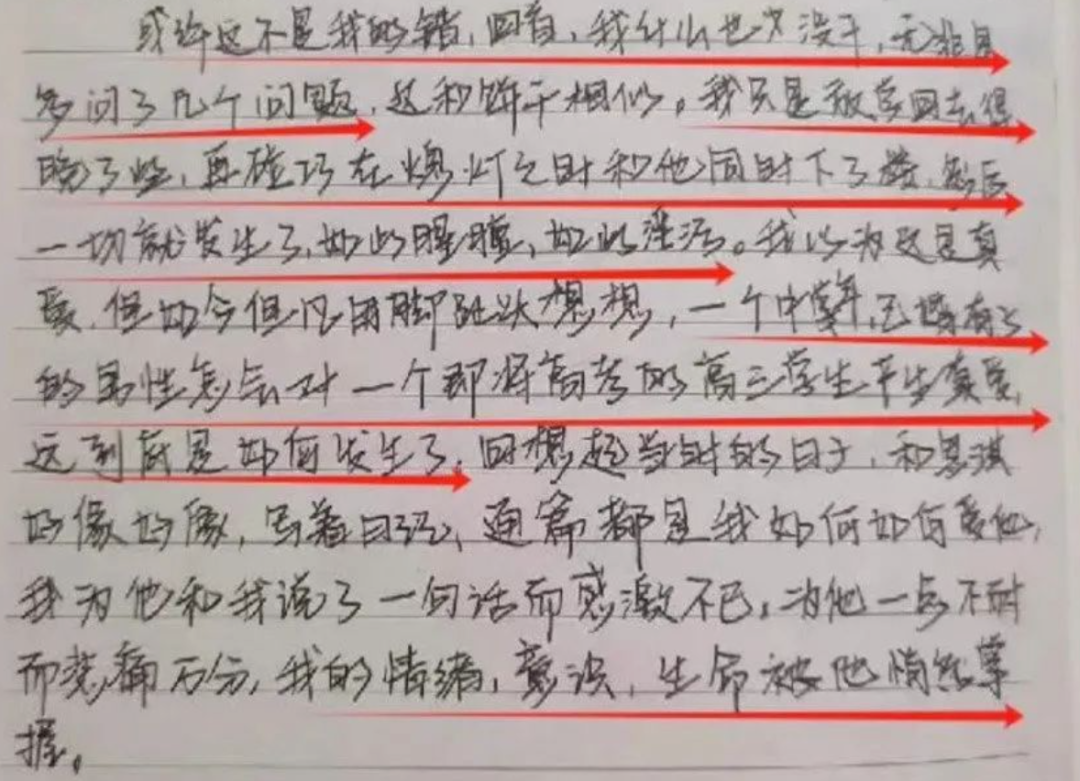 或许这不是我的错，回首，我什么也又没干，无非是
多问了几个问题，这和饼干相似。我只是放学回去得
晚了些，再碰巧在熄灯之时和他同时下了楼，然后
一切就发生了，如此腥膻，如此淫污。我以为这是真
爱，但如今但凡用脚趾头想想，一个中年，已婚有子
的男性怎会对一个即将高考的高三学生产生真爱，
这到底是如何发生了。回想起当时的日子，和思琪
好像好像，写着日记，通篇都是我如何如何爱他，
我为他和我说了一句话而感激不已，为他一点不耐
而悲痛万分，我的情绪，意识，生命被他悄然掌
握。